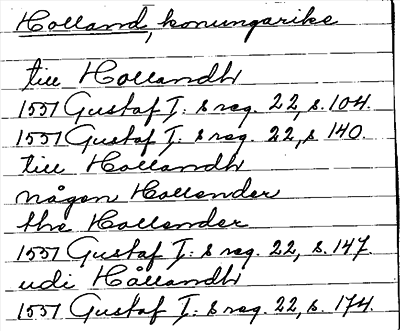 Holland, konungarike
till Hollandh
1551 Gustaf I: s reg. 22, s. 104.
1551 Gustaf I: s reg. 22, s 140.
till Hollandh
någon Hollender
the Hollender
1551 Gustaf I: s reg. 22, s. 147.
udi Hållandh
1551 Gustaf I: s reg. 22, s. 174.